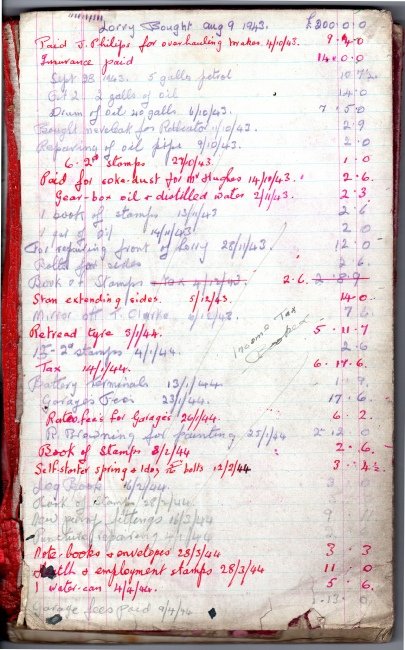 Lorry Bought Aug 9 1943. £200.0.0
Paid J. Philips for overhauling brakes 4/10/43. 9.4.0
Insurance paid 14.0.0
Sept 28 1943. 5 galls petrol 10.7½
Oct 2 2 galls of oil 14.0
Drum of oil 40 galls 6/10/43. 7.5.0
Bought neverleak for Radiator /10/43. 2.9
Repairing of oil pipe 9/10/43. 2.0
6. 2d stamps 27/10/43. 1.0
Paid for coke-dust for Mr Hughes 14/10/43. 2.6
Gear-box oil + distilled water 2/11/43. 2.3
1 book of stamps 13/11/43 2.6
1 qt of oil 14/11/43 2.0
For repairing front of lorry 28/11/43. 12.0
Bolts for sides 2.6
Book of Stamps 4/12/43. 2.6. 2.8.9
Stan extending sides. 5/12/43. 14.0
Mirror off T. Clarke /12/43. 7.6
Retread tyre 3/1/44. 5.11.7
15- 2d stamps 4/1/44. 2.6
Income Tax
Tax 14/1/44. 6.17.6
Battery terminals 13/1/44 1.9
Garages Fees 23/1/44. 17.6
Rates fees for Garages 26/1/44. 6.2
R. Browning for painting 25/1/44 2.12.0
Book of Stamps 8/2/44 2.6.
Self-starter spring + 1 dog bolts 12/2/44 3.4½
Log Book 16/2/44 3
Book of Stamps 28/2/44.
fittings 16/3/44 9
Puncture repairing
Note-books + envelopes 28/3/44 3.3
Health + employment stamps 28/3/44 11.0
1 water-can 4/4/44. 5.6.
Garage fees paid 9/4/44 .13.0